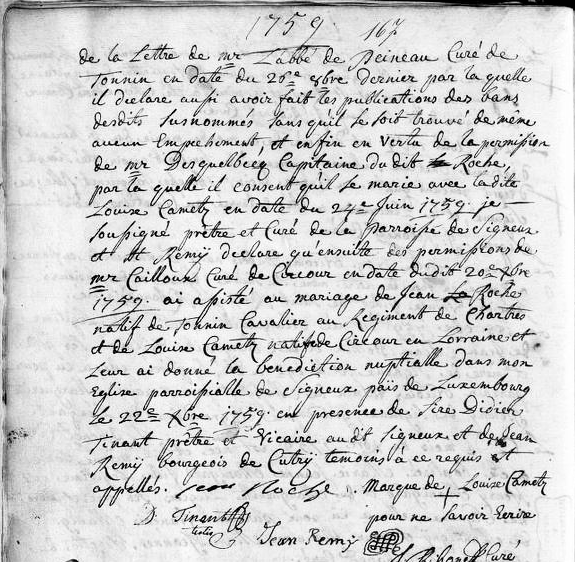 1759. 167
de la Lettre de mr L'abbé de Peineau Curé de
Tonnin en date du 26e 8bre dernier par la quelle
il declare aussi avoir fait les publications des bans
desdits susnommés sans qu'il se soit trouvé de même
aucun Empechement, et enfin en vertu de la permission
de mr Desquelbecq Capitaine du dit Roche,
par la quelle il consent qu'il se marie avec ladite
Louise Cametz en date du 24e Juin 1759. je
soussigné prêtre et Curé de la Parroisse de Signeux
et St Remÿ declare qu'ensuite des permissions du
mr Cailloux Curé de Circour en date dudit 20e Xbre
1759. ai assisté au mariage de Jean La Roche
natif de Tonnin Cavalier au Regiment de Chartres
et de Louise Cametz native de Circour en Lorraine et
Leur ai donné la benediction nuptialle dans mon
Eglise parroissialle de Signeux païs de Luxembourg
Le 22e Xbre 1759. en presence de Sire Didier
Tinant prêtre et Vicaire au dt Signeux et de Jean
Remÿ bourgeois de Cutrÿ temoins à ce requis et
appellés. jean Roche. Marque de + Louise Cametz
D. Tinant pour ne savoir Ecrire
testis Jean Remÿ
Curé